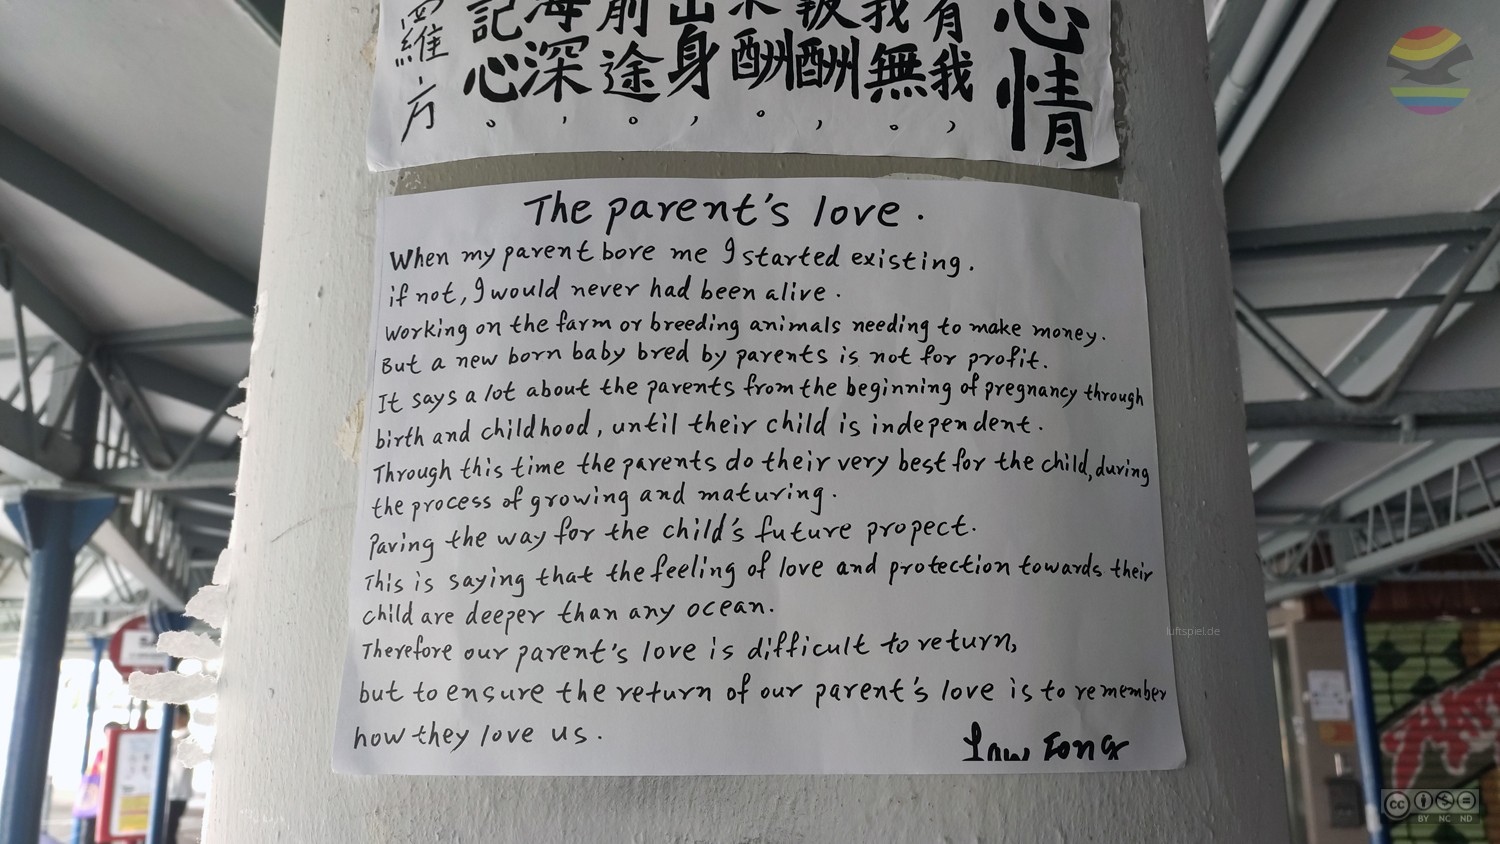 羅方
記海前出來報我有
心深途身酬酬無我
。，。，。，。，
心情
The parent's love.
When my parent bore me I started existing.
if not, I would never had been alive.
Working on the farm or breeding animals needing to make money.
But a new born baby bred by parents is not for profit.
It says a lot about the parents from the beginning of pregnancy through
birth and childhood, until their child is independent.
Through this time the parents do their very best for the child, during
the process of growing and maturing.
Paving the way for the child's future propect.
This is saying that the feeling of love and protection towards their
child are deeper than any ocean.
Therefore our parent's love is difficult to return,
but to ensure the return of our parent's love is to remember
how they love us.
Law Fong
luftspiel.de
CC BY NC ND